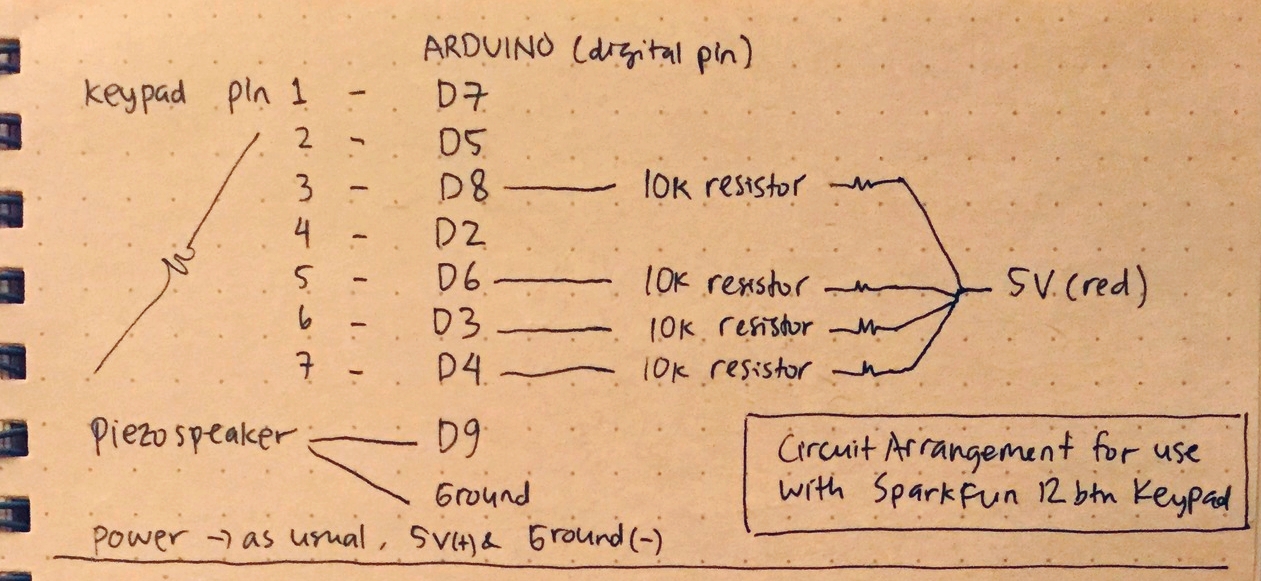 ARDUINO (digital pin)
keypad pin 1 - D7
2 - D5
3 - D8 10K resistor
4 - D2
5 - D6 10K resistor 5V (red)
6 - D3 10K resistor
7 - D4 10K resistor
Piezospeaker D9
Ground
Circuit Arrangement for use
with SparkFun 12 btn Keypad
power → as usual, 5V(+) & Ground(-)